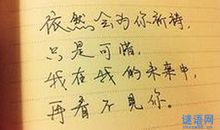 依然会为你祈祷,
只是可惜,
我在我的未来中,
再看不见你。
谜语网